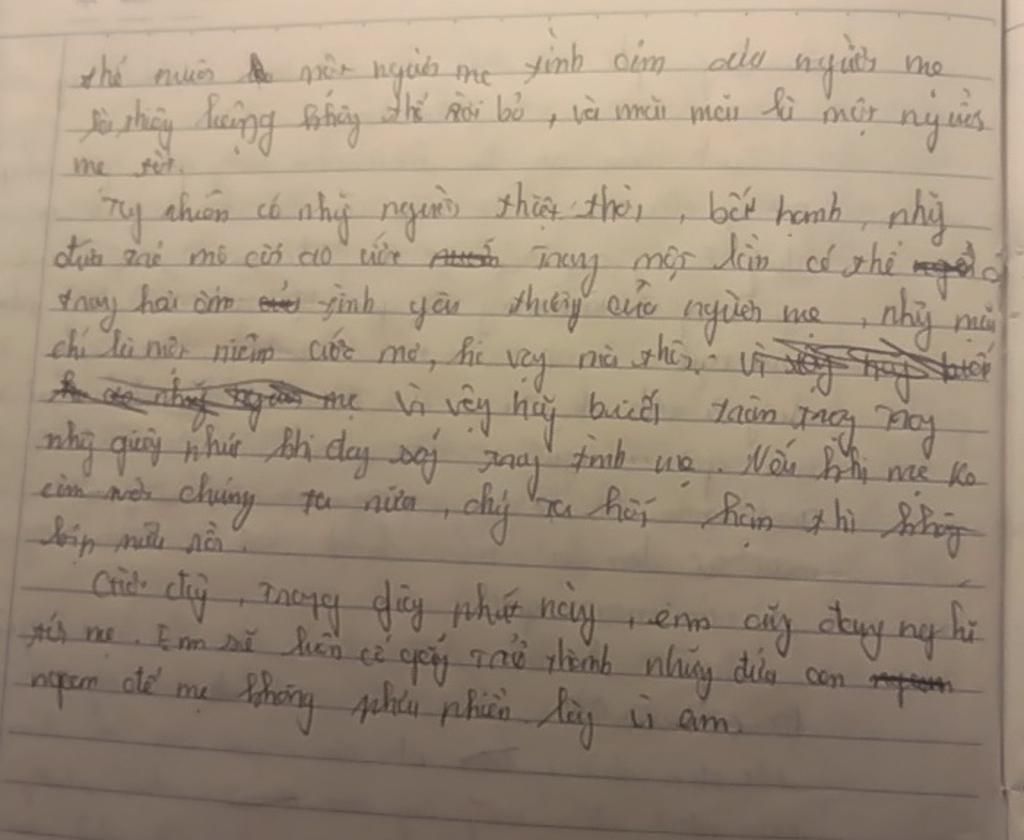 thế muốn một người mẹ tình cảm cho người mẹ
là thiêng không thể rời bỏ, và mãi mãi là một người
mẹ tốt.
Tuy nhiên có nhữg người thiệt thòi, bất hạnh, nhữg
đứa trẻ mồ côi ao ước trong một lần có thể
trong hơi ấm tình yêu thương của người mẹ, nhữg mãi
chỉ là một niềm ước mơ, hi vọng mà thôi. Vì
mẹ Vì vậy hãy biết trân trọng
nhữg giây phút khi đag sốg trog tình mẹ. Nếu khi mẹ ko
còn với chúng ta nữa, chúg ta hối hận thì không
kịp nữa rồi.
Giờ đây, trong giây phút này, em cũg đag nghĩ
tới mẹ. Em sẽ luôn cố gắg trở thành nhữg đứa con
ngoan để mẹ không phiền lòg vì em